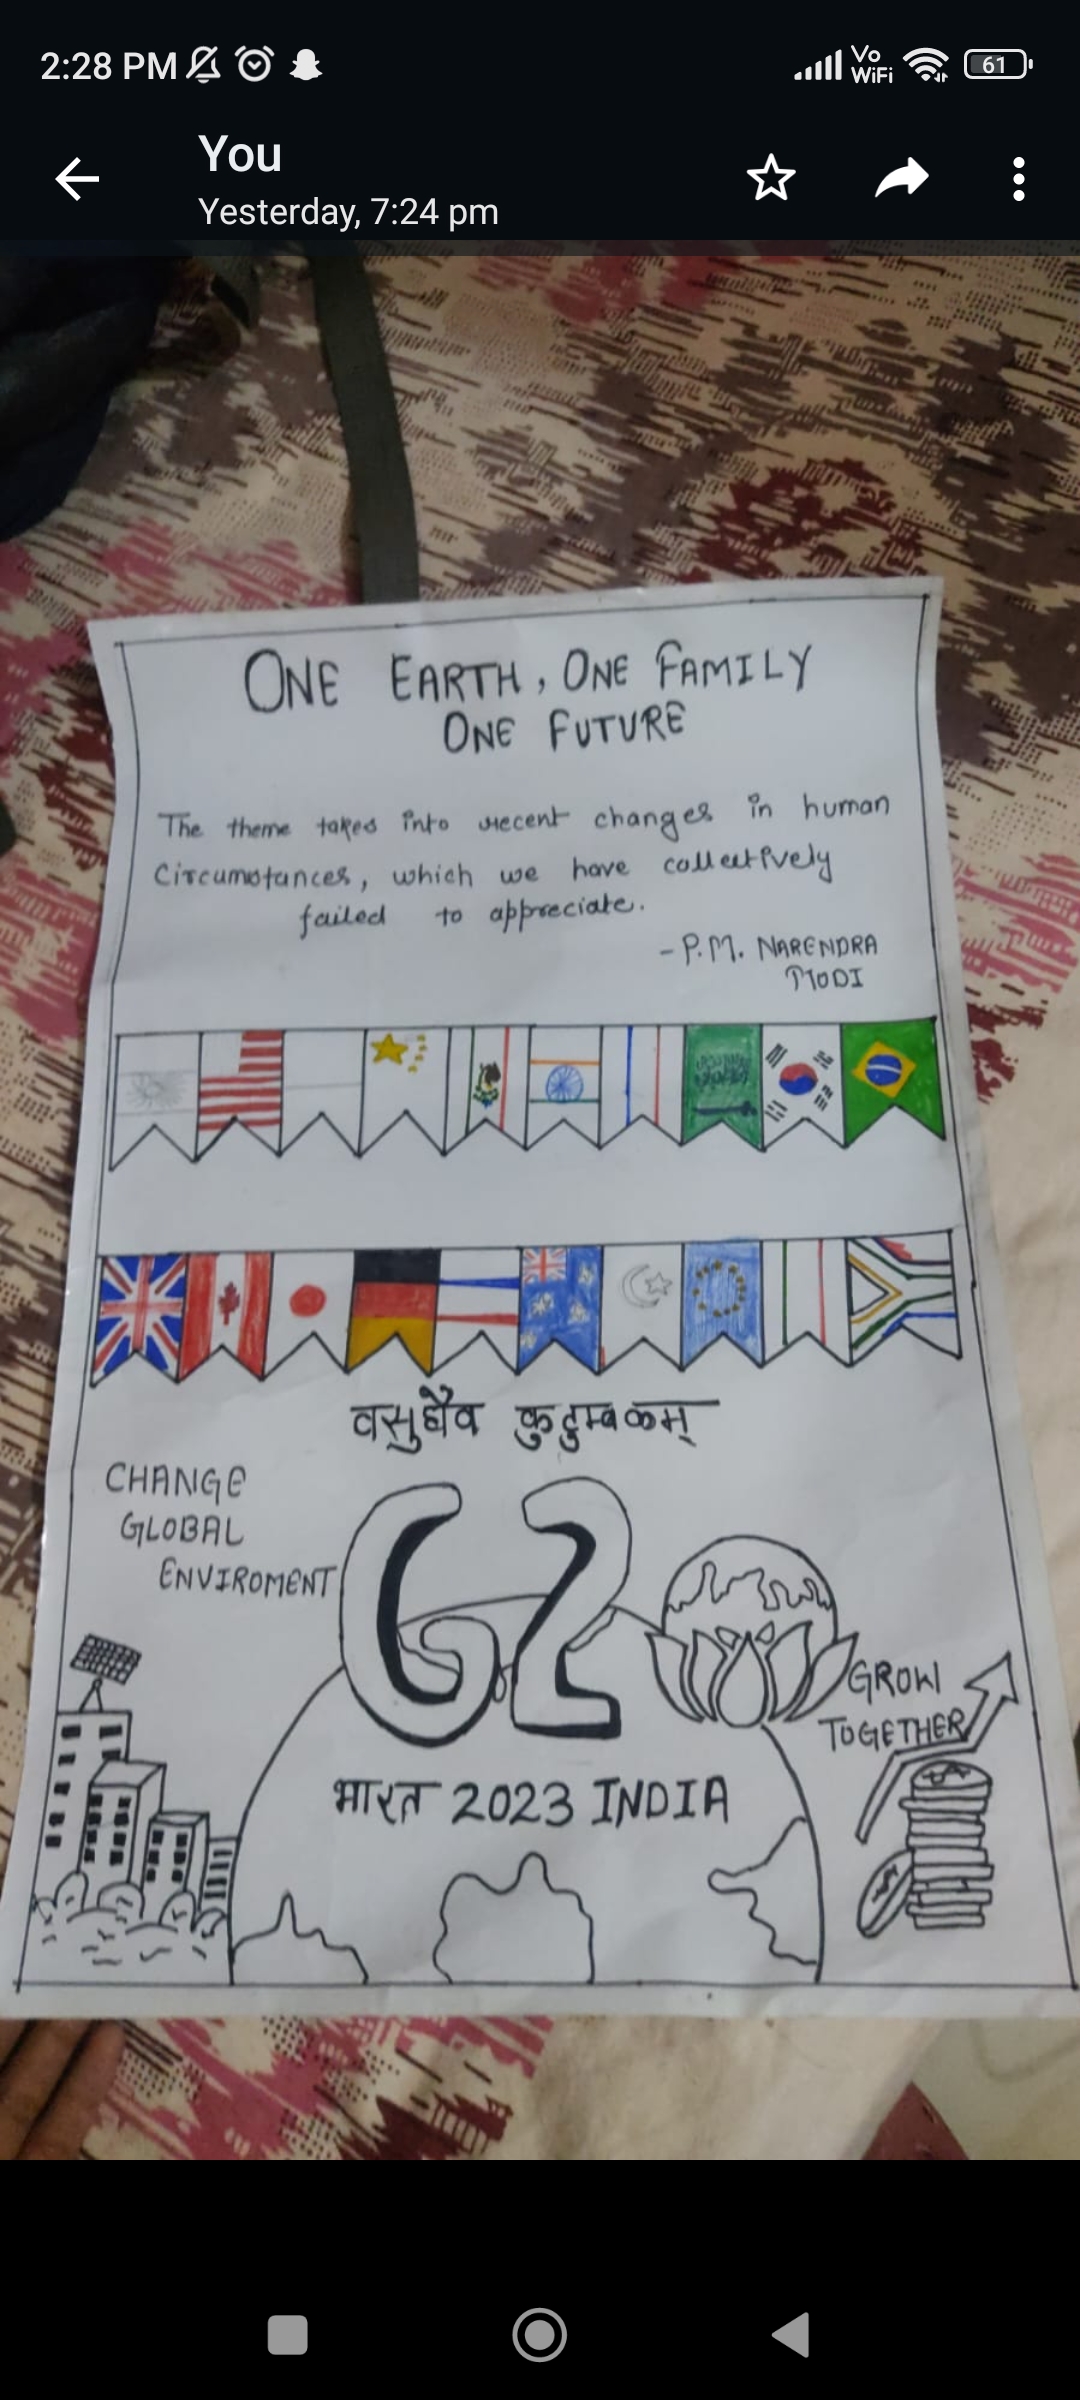 2:28 PM
Vo
WiFi
61
You
Yesterday, 7:24 pm
ONE EARTH, ONE FAMILY
ONE FUTURE
The theme takes into recent changes in human
Circumstances, which we have collectively
failed to appreciate.
- P.M. NARENDRA
MODI
वसुधैव कुटुम्बकम्
CHANGE
GLOBAL
ENVIROMENT
G2
GROW
TOGETHER
भारत 2023 INDIA